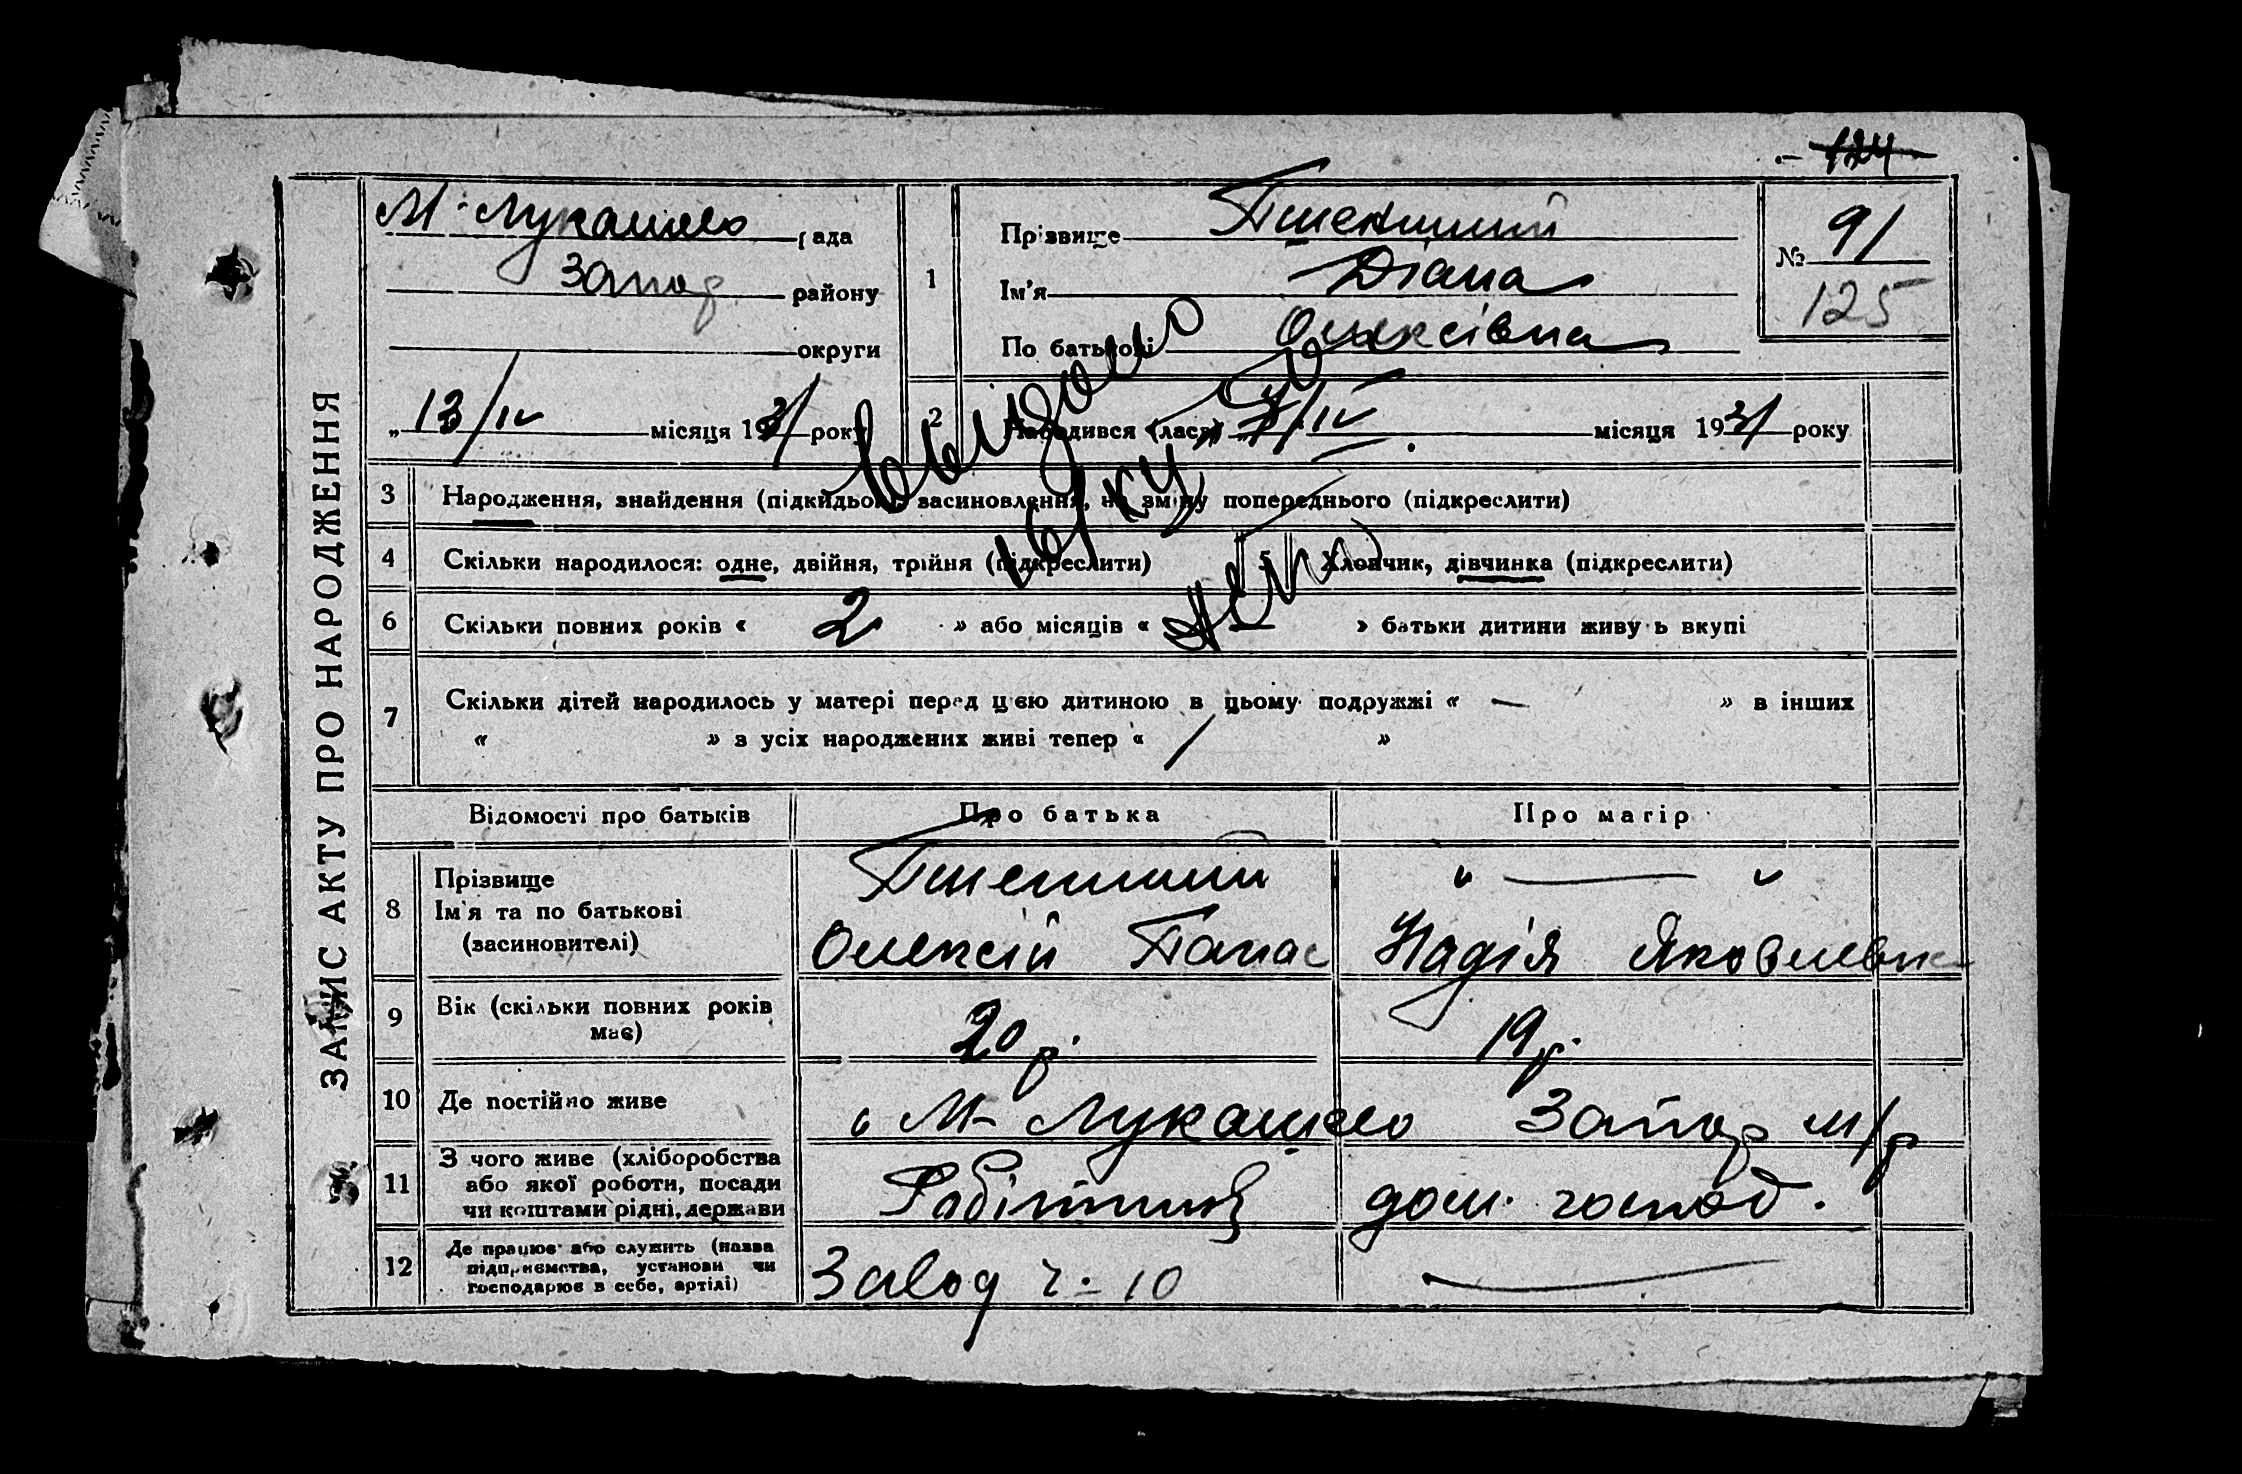 124
ЗАПИС АКТУ ПРО НАРОДЖЕННЯ
М-Лукашево рада
Запор району
округи
„ 13/IV місяця 1931 року
1
Прізвище Пшеничний
Ім'я Діана
По батькові Олексівна
№ 91
125
2 Народився (лася) „ 7/IV місяця 1931 року
3 Народження, знайдення (підкидьок) засиновлення, на зміну попереднього (підкреслити)
4 Скільки народилося: одне, двійня, трійня (підкреслити) 5 Хлопчик, дівчинка (підкреслити)
6 Скільки повних років « 2 » або місяців « — » батьки дитини живуть вкупі
7 Скільки дітей народилось у матері перед цією дитиною в цьому подружжі « — » в інших
« » з усіх народжених живі тепер « / »
Відомості про батьків Про батька Про матір
8 Прізвище Пшеничний " — "
Ім'я та по батькові
(засновителі) Олексій Панас Надія Яковлевн
9 Вік (скільки повних років має) 20 р. 19 р.
10 Де постійно живе с М- Лукашево Запор м/р
11 З чого живе (хліборобства
або якої роботи, посади
чи коштами рідні, держави Робітник дом. господ.
12 Де працює або служить (назва
підприємства, установи чи
господарює в себе, артілі) Завод ч- 10 —